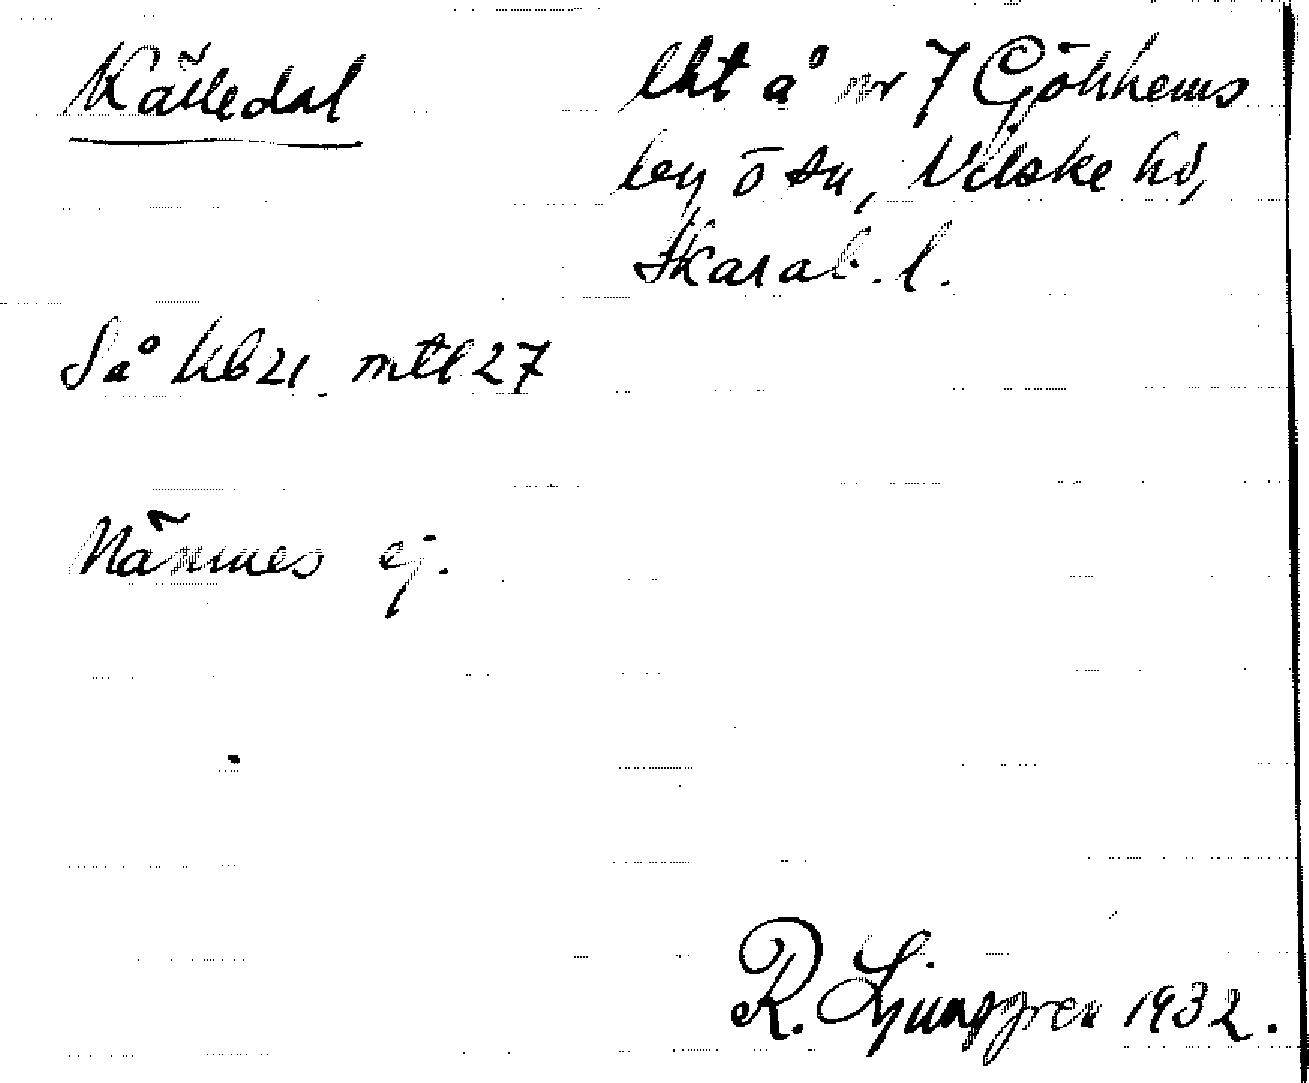 Källedal
lht å nr 7 Gökhems
by ö sn, Vilske hd,
Skarab. l.
Så kb 21. mtl 27
Nämnes ej.
R. Ljunggren 1932.